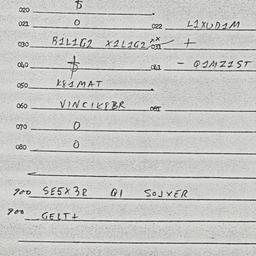 020 $
021 0 022 L1XUD1M
030 B1L1G2 X1L1G2 xx 031 +
040 $ 041 - Q1MZ1ST
050 K81MAT
060 VINCIK8BR 065
070 0
080 0
900 SE5X3R Q1 SOJVER
900 GELT+